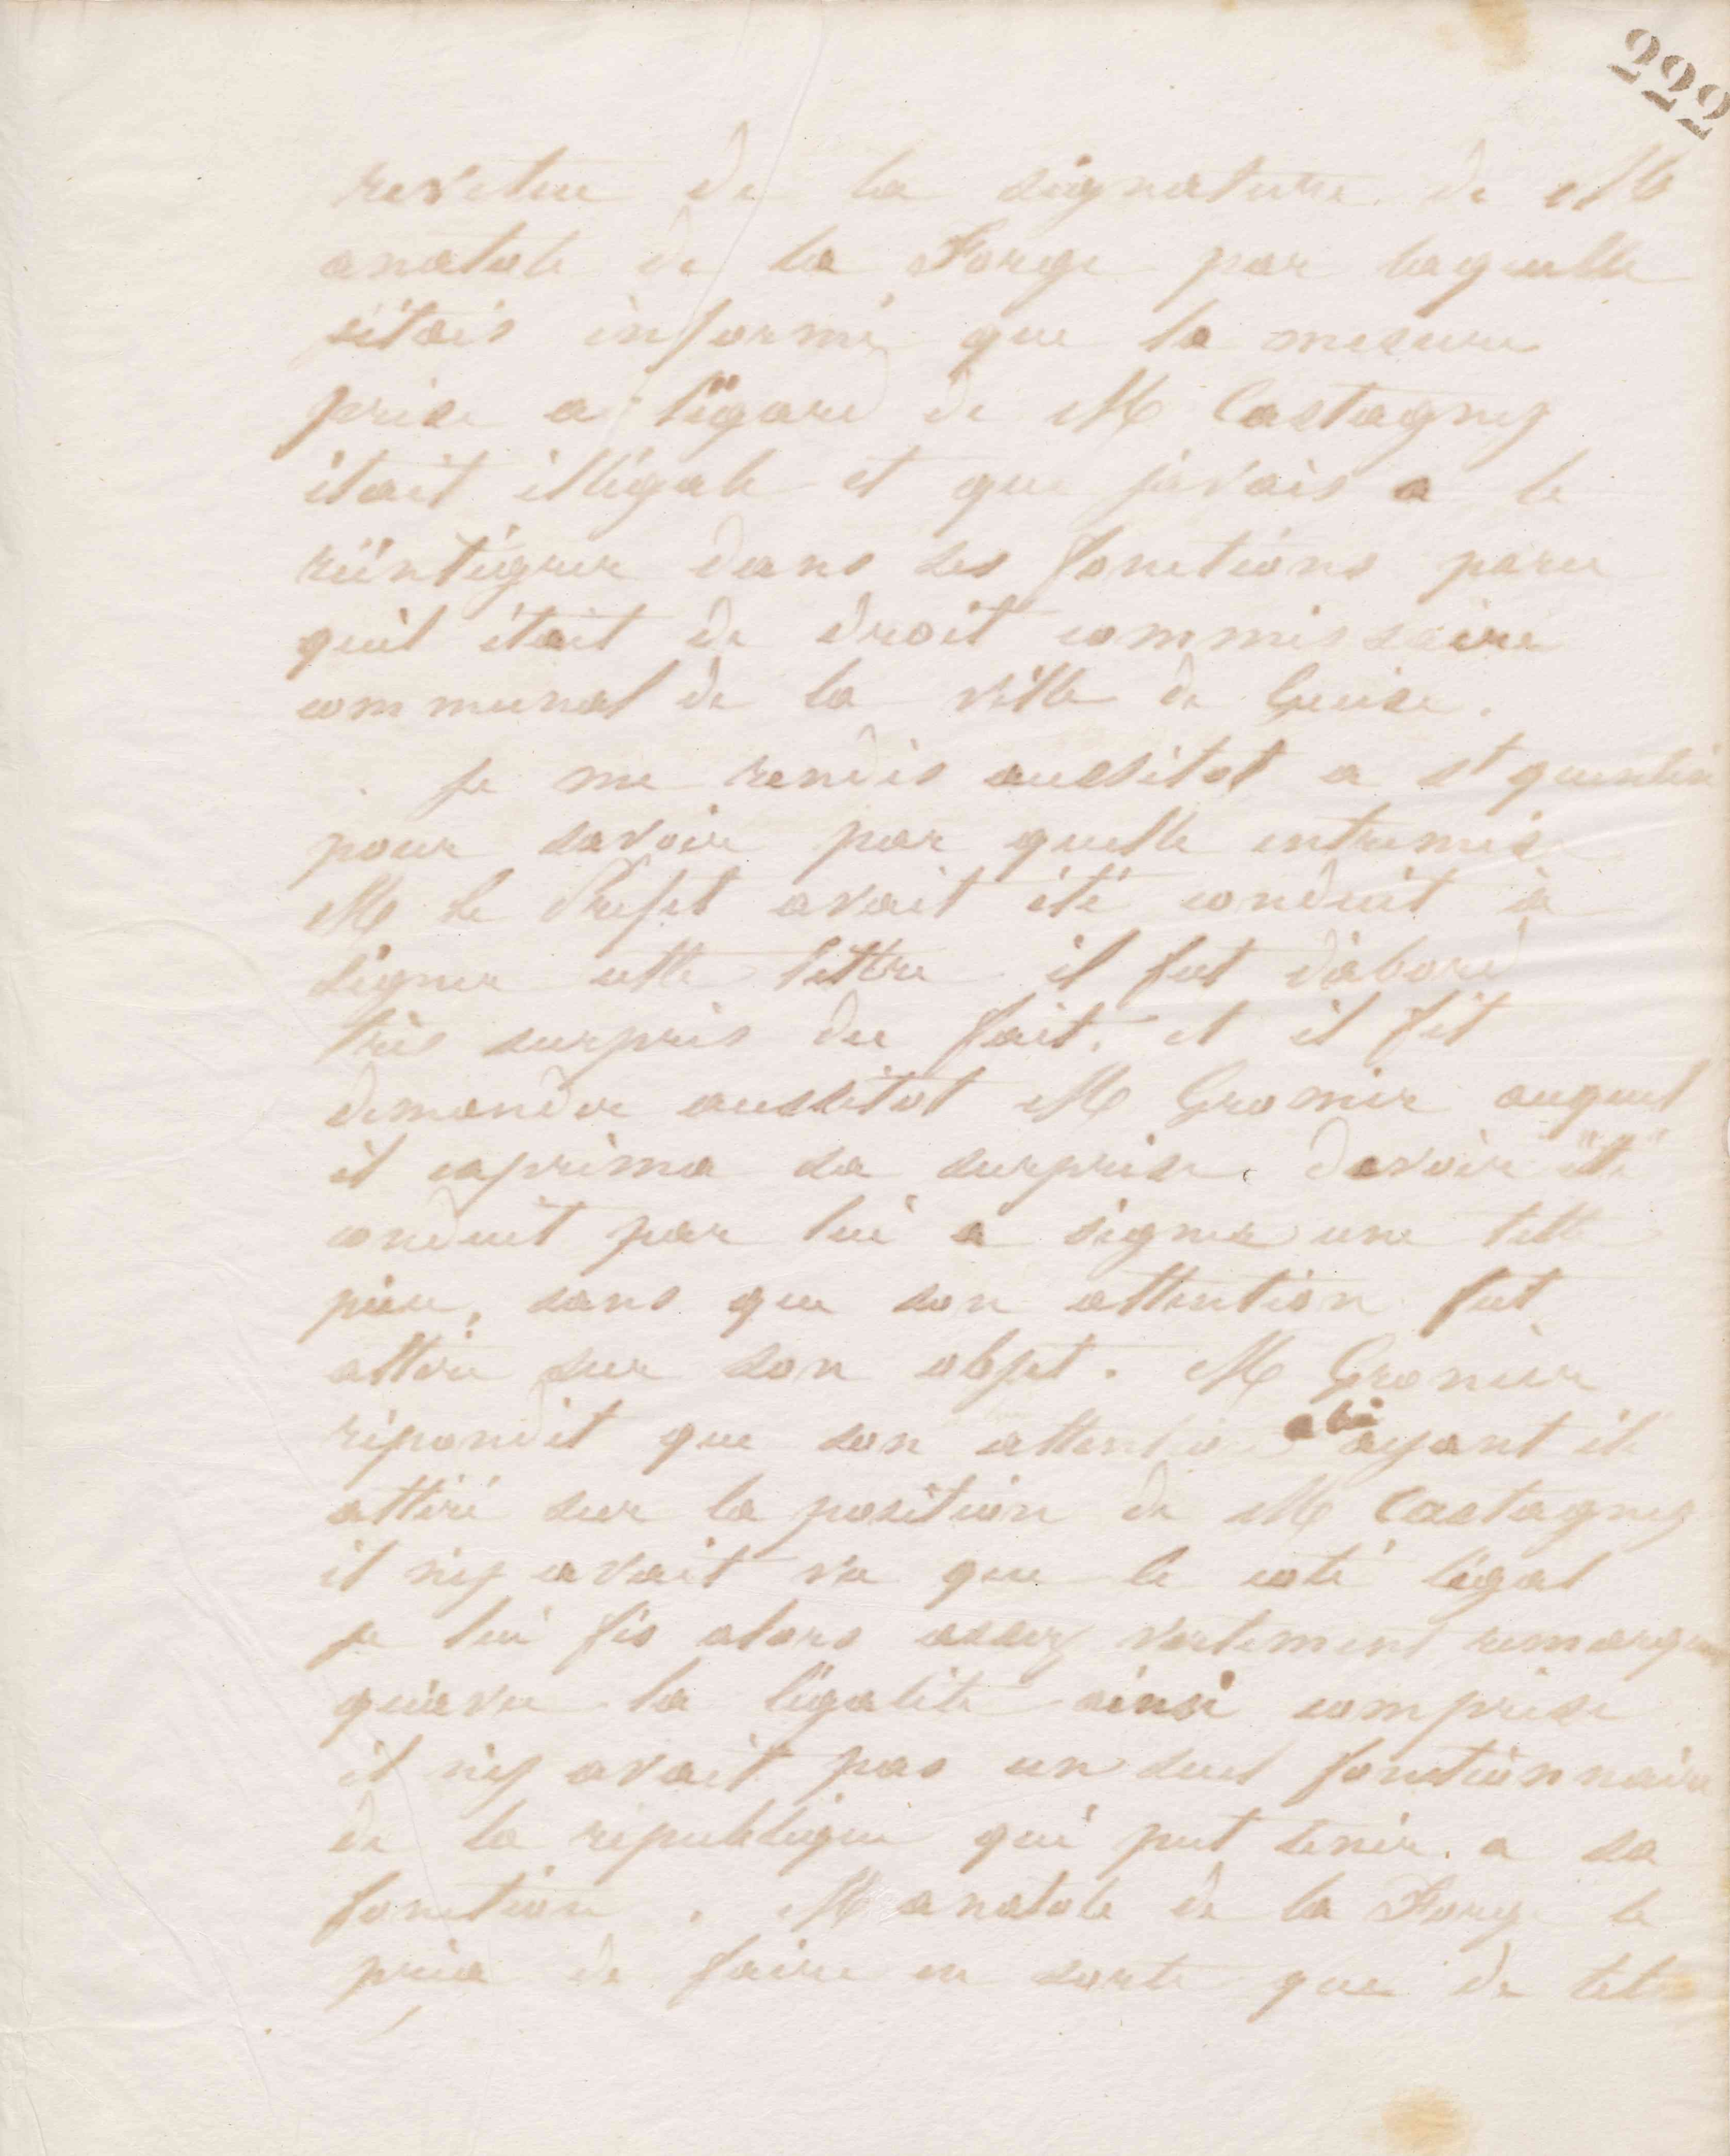 222
revetue de la signature de M
anatole de la Forge par laquelle
j'étais informé que la mesure
prise a l'égard de M Castagnez
était illégale et que j'avais a le
réintégrer dans ses fonctions parce
qu'il était de droit commissaire
communal de la ville de Guise.
je me rendis aussitot a St quentin
pour savoir par quelle entremise
M le Préfet avait été conduit à
signer cette lettre il fut d'abord
très surpris du fait, et il fit
demander aussitot M Gronier auquel
il exprima sa surprise. davoir été
conduit par lui a signer une telle
pièce, sans que son attention fut
attiré sur son objet. M Gronier
répondit que son attention a lui ayant été
attiré sur la position de M Castagnez
il n'y avait vu que le coté légal
je lui fis alors assez vertement remarquer
qu'avec la légalité ainsi comprise
il n'y avait pas un seul fonctionnaire
de la république qui put tenir a sa
fonction. M anatole de la Forge le
pria de faire en sorte que de tels